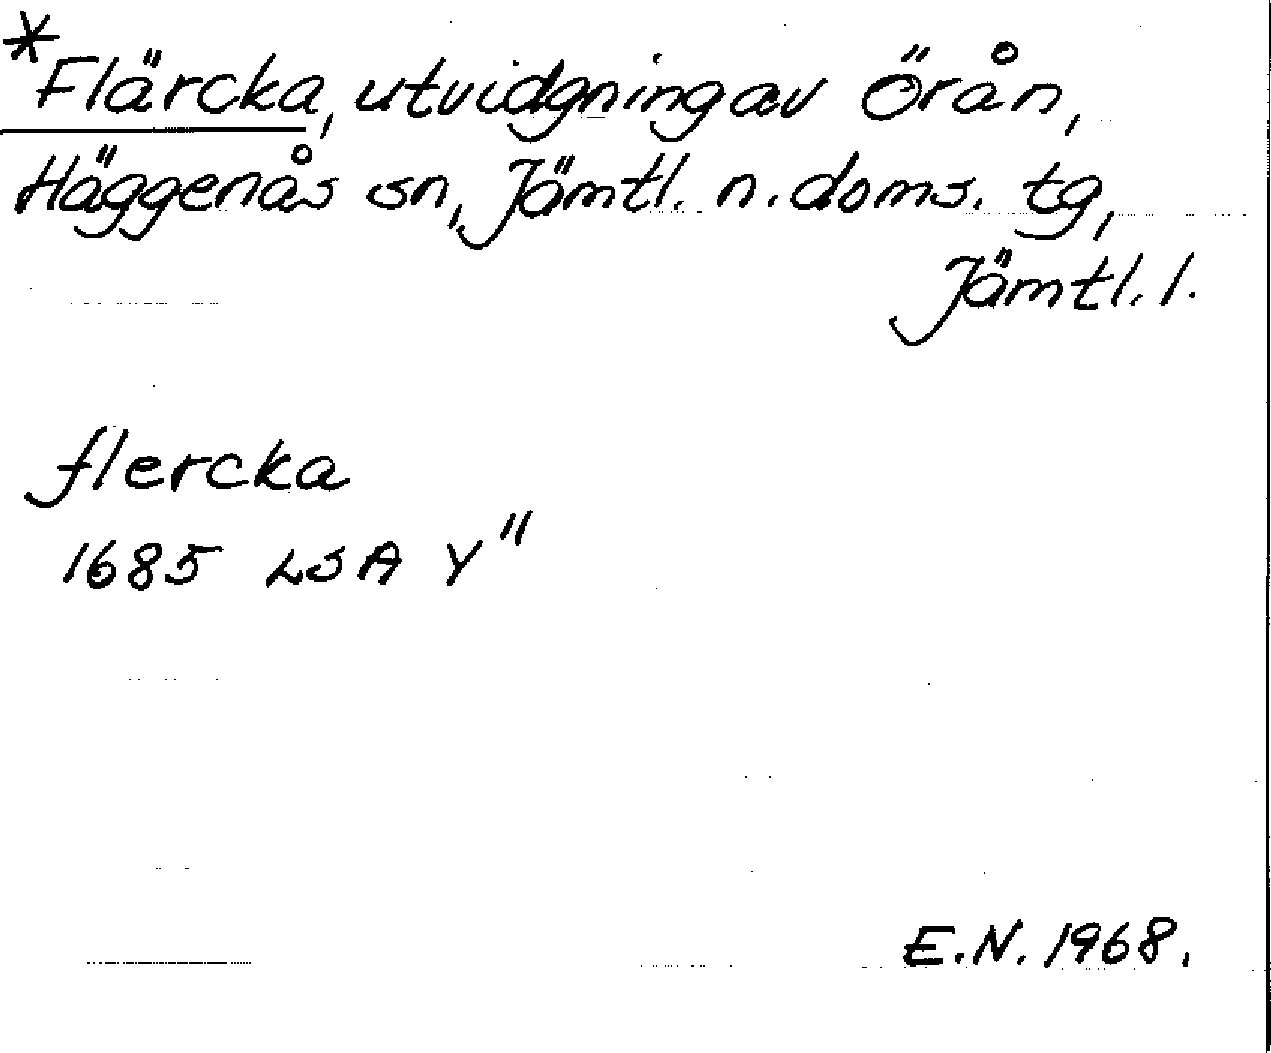 *Flärcka, utvidgning av Örån,
Häggenås sn, Jämtl. n. doms. tg,
Jämtl. l.
flercka
1685 LSA Y"
E.N. 1968.